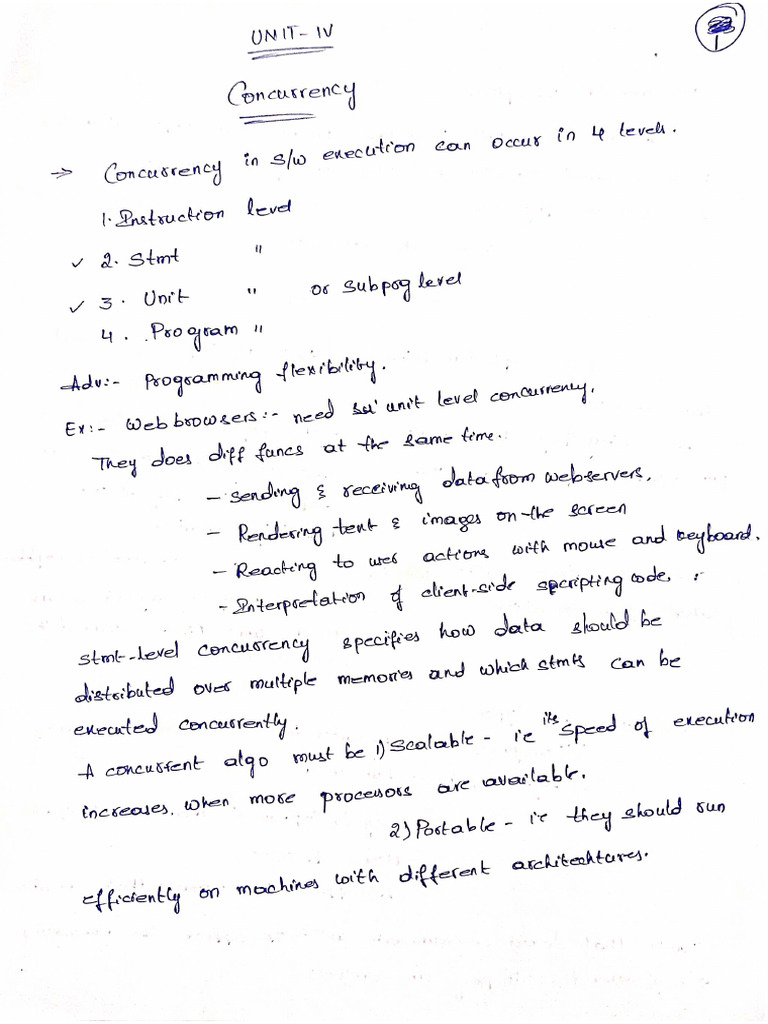 UNIT-IV
Concurrency
→ Concurrency in s/w execution can occur in 4 levels.
1. Instruction level
✓ 2. Stmt "
✓ 3. Unit " or subprg level
4. Program "
Adv:- Programming flexibility.
Ex:- Web browsers:- need unit level concurrency.
They does diff funcs at the same time.
- sending & receiving data from webservers.
- Rendering text & images on the screen
- Reacting to user actions with mouse and keyboard.
- Interpretation of client-side scripting code.
stmt-level concurrency specifies how data should be
distributed over multiple memories and which stmts can be
executed concurrently.
A concurrent algo must be 1) scalable - ie its speed of execution
increases, when more procesors are available.
2) Portable - ie they should run
efficiently on machines with different architechtures.